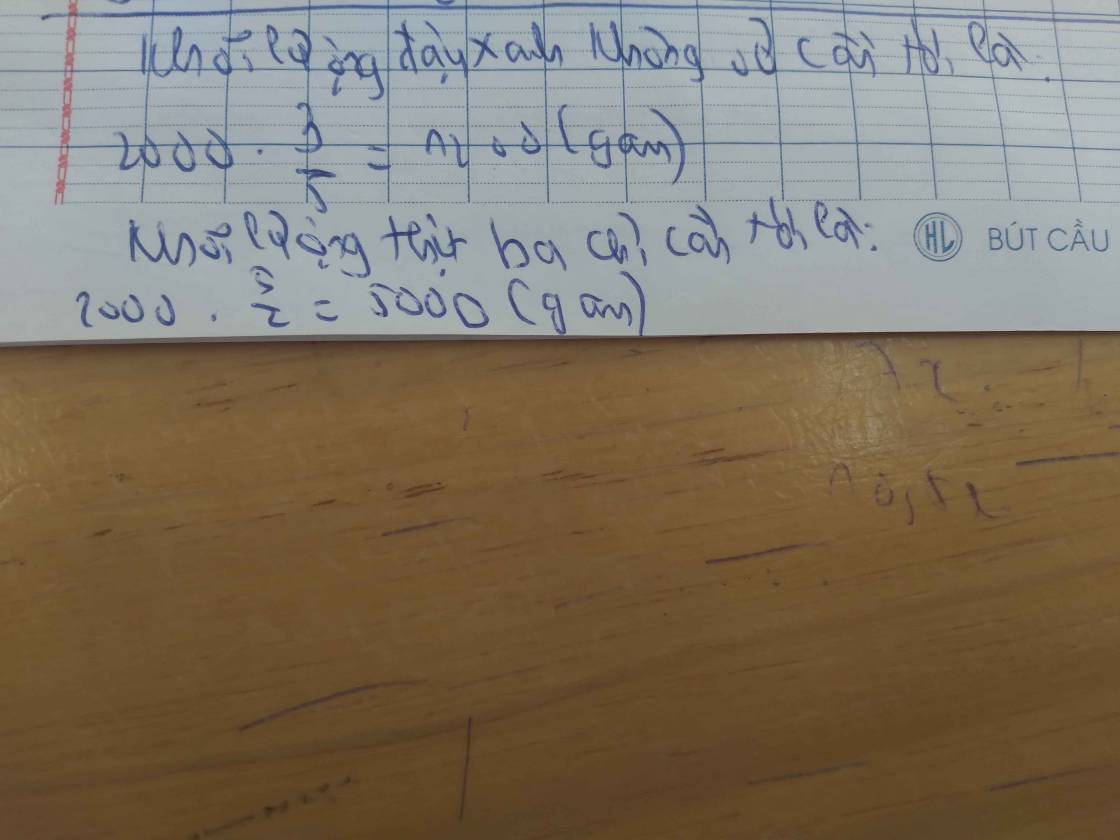 Khối lượng đậu xanh không vỏ cần tới là:
2000 . 3/5 = 1200 (gam)
Khối lượng thịt ba chỉ cần tới là:
HL BÚT CẦU
2000 . 5/2 = 5000 (gam)
7x
10,5x